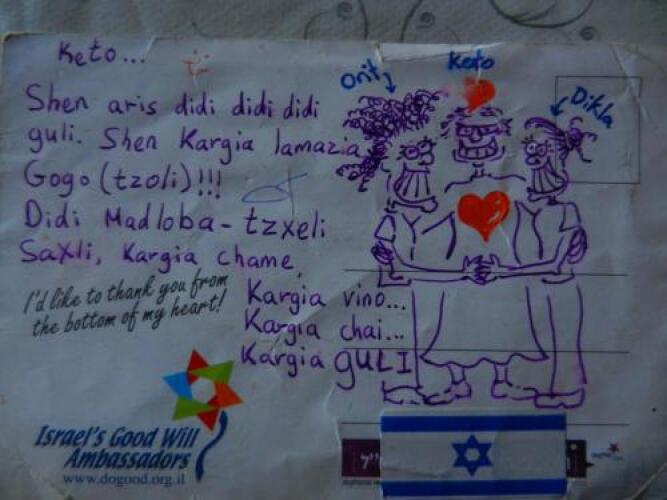 Keto...
Shen aris didi didi didi
guli. Shen Kargia lamazia
Gogo (tzoli)!!!
Didi Madloba - tzxeli
Saxli, Kargia chame
I'd like to thank you from
the bottom of my heart!
Kargia vino...
Kargia chai...
Kargia GULI
Orit
Keto
Dikla
Israel's Good Will
Ambassadors
www.dogood.org.il